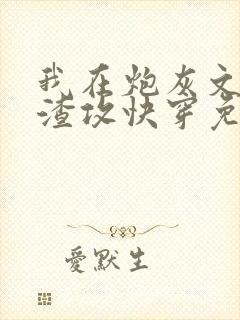 我在炮灰文
渣攻快穿免
愛默生